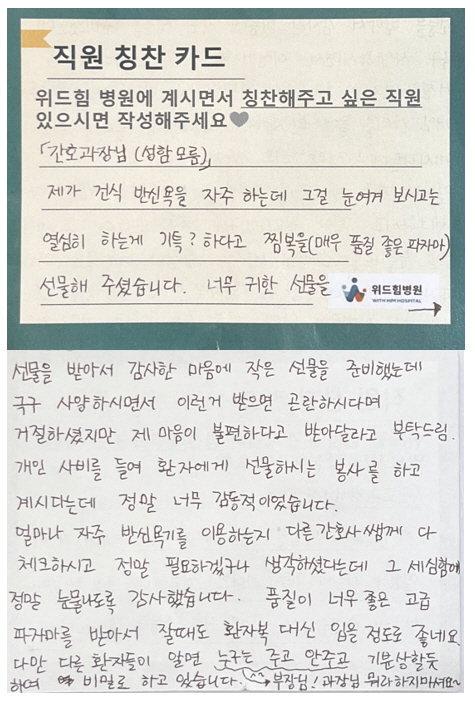 직원 칭찬 카드
위드힘 병원에 계시면서 칭찬해주고 싶은 직원
있으시면 작성해주세요🩶
「간호과장님 (성함 모름)」
제가 건식 반신욕을 자주 하는데 그걸 눈여겨 보시고는
열심히 하는게 기특? 하다고 찜복을(매우 품질 좋은 파자마)
선물해 주셨습니다. 너무 귀한 선물을
위드힘병원
WITH HIM HOSPITAL
선물을 받아서 감사한 마음에 작은 선물을 준비했는데
극구 사양하시면서 이런거 받으면 곤란하시다며
거절하셨지만 제 마음이 불편하다고 받아달라고 부탁드림.
개인 사비를 들여 환자에게 선물하시는 봉사를 하고
계시다는데 정말 너무 감동적이었습니다.
얼마나 자주 반신욕기를 이용하는지 다른 간호사쌤께 다
체크하시고 정말 필요하겠구나 생각하셨다는데 그 세심함에
정말 눈물나도록 감사했습니다. 품질이 너무 좋은 고급
파자마를 받아서 잘때도 환자복 대신 입을 정도로 좋네요
다만 다른 환자들이 알면 누구는 주고 안주고 기분상할듯
하여 비밀로 하고 있습니다. ^^ 부장님! 과장님 뭐라하지마세요~